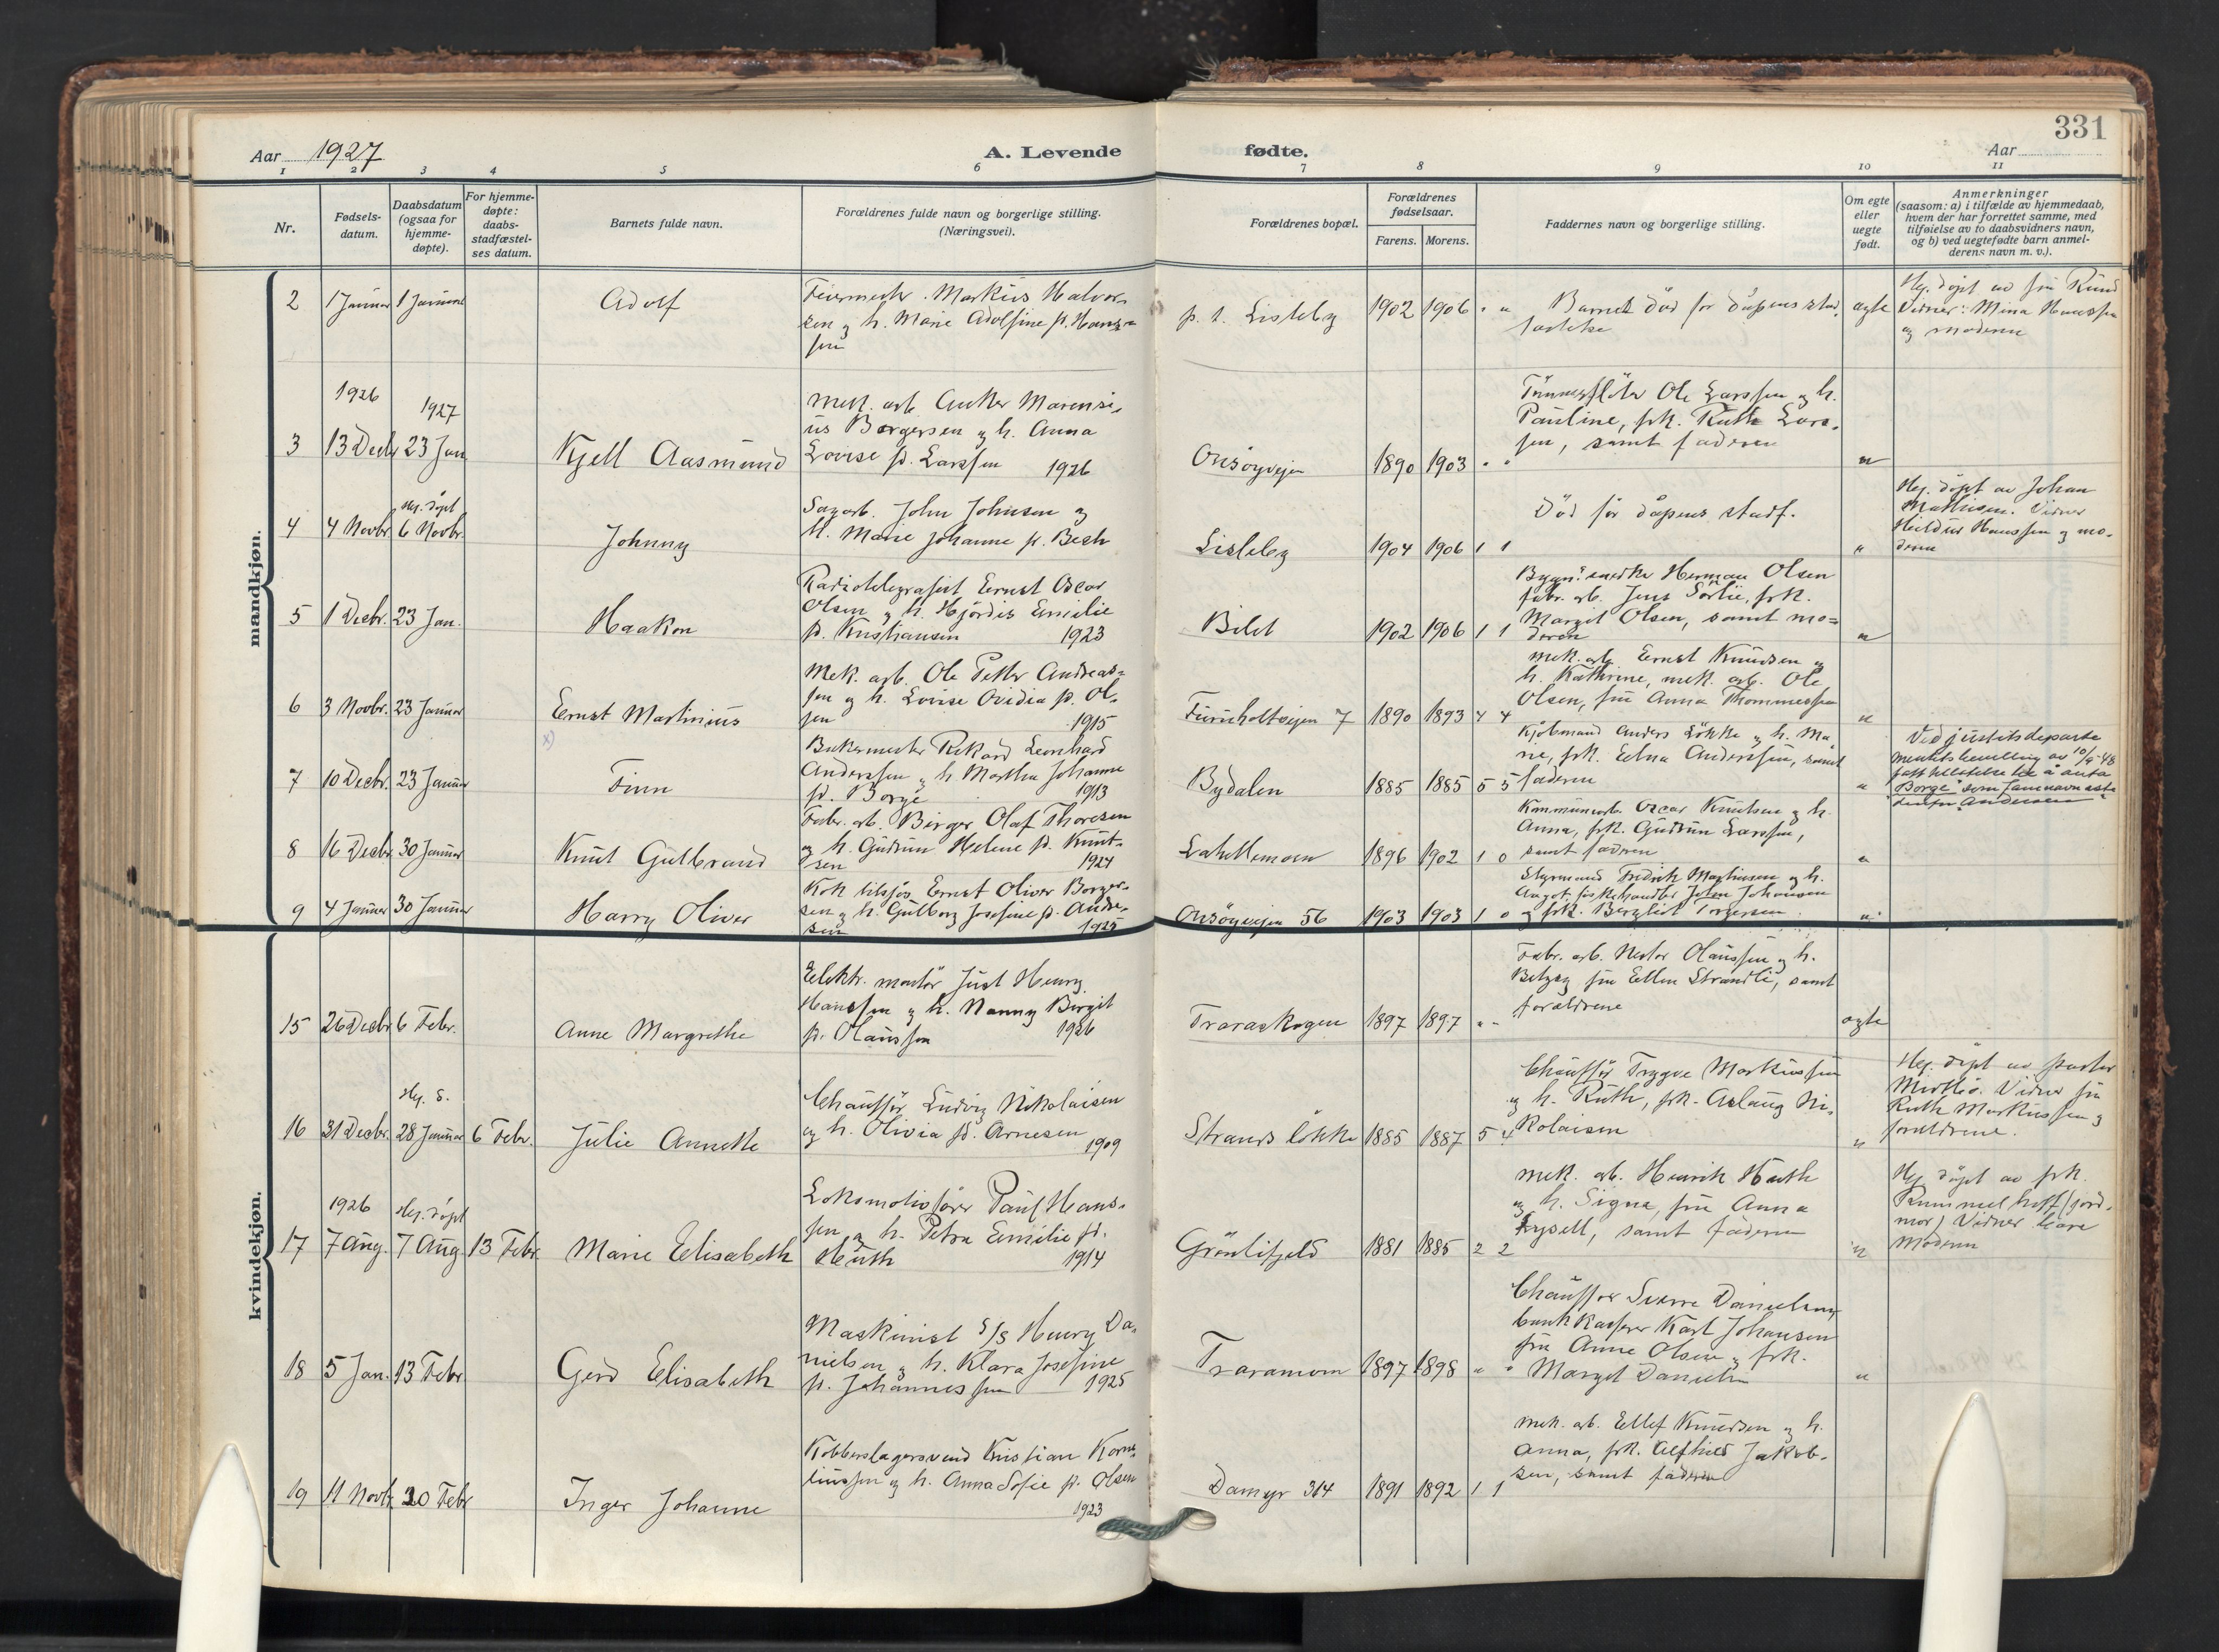 331
Aar 1927
A. Levende
fødte.
Aar
1 2 3 4 5 6 7 8 9 10 11
Nr.
Fødsels-
datum.
Daabsdatum
(ogsaa for
hjemme-
døpte).
For hjemme-
døpte:
daabs-
stadfæstel-
ses datum.
Barnets fulde navn.
Forældrenes fulde navn og borgerlige stilling.
(Næringsvei).
Forældrenes bopæl.
Forældrenes
fødselsaar.
Farens. Morens.
Faddernes navn og borgerlige stilling.
Om egte
eller
uegte
født.
Anmerkninger
(saasom: a) i tilfælde av hjemmedaab,
hvem der har forrettet samme, med
tilføielse av to daabsvidners navn,
og b) ved uegtefødte barn anmel-
derens navn m. v.).
maandkjøn.
2 1 Januar 1 Januar
Adolf
Feiermester Markus Halvor-
sen og h. Marie Adolfine f. Hans-
sen
p. t. Lisleby 1902 1906 " "
Barnet död för dåpens stad-
fæstelse
ægte
Hj. döpt av fru Rund
Vidner: Mina Hanssen
og moderen
1926 1927
3 13 Decb. 23 Jan
Kjell Aasmund
Mek. arb. Anker Marensi-
us Borgersen og h. Anna
Lovise f. Larssen 1926
Onsöyvejen 1890 1903 " "
Ole Larssen og h.
Pauline, frk. Ruth Lars-
sen, samt faderen
"
Hj. döpt
4 4 Novbr. 6 Novbr.
Johnny
Sagarb. John Johnsen og
h. Marie Johanne f. Bech
Lisleby 1904 1906 1 1
Död för dåpens stadf.
"
Hj. döpt av Johan
Mathisen. Vidner
Hildur Hanssen og mo-
deren
5 1 Decbr. 23 Jan.
Haakon
Radiotelegrafist Ernst Oscar
Olsen og h. Hjördis Emilie
f. Kristiansen 1923
Bilet 1902 1906 1 1
Bygn. snedker Herman Olsen
fabr. arb. Jens Sörlie, frk.
Margit Olsen, samt mo-
deren
"
6 3 Novbr. 23 Januar
Ernst Martinius
Mek. arb. Ole Petter Andreas-
sen og h. Lovise Ovidia f. Ol-
sen 1915
Furuholtvejen 7 1890 1893 4 4
Mek. arb. Ernst Knudsen og
h. Kathrine, mek. arb. Ole
Olsen, fru Anna Thommessen
"
x)
7 10 Decbr. 23 Januar
Finn
Bakermester Rikard Leonhard
Anderssen og h. Martha Johanne
f. Borge 1913
Bydalen 1885 1885 5 5
Kjöbmand Anders Lökke og h. Ma-
rie, frk. Edna Anderssen, samt
faderen
"
Ved justitsdeparte
mentets bevilling av 10/5 48
fått tilladelse til å anta
"Borge" som familienavn iste-
denfor "Andersen"
8 16 Decbr. 30 Januar
Knut Gulbrand
Fabr. arb. Birger Olaf Thoresen
og h. Gudrun Helene f. Knut-
sen 1924
1896 1902 1 0
Kommunearb. Oscar Knutsen og h.
Anna, frk. Gudrun Larssen,
samt faderen
"
9 4 Januar 30 Januar
Harry Oliver
Kok tilsjøs Ernst Oliver Borger-
sen og h. Gulborg Josefine f. Ander-
sen 1925
Onsöyveien 56 1903 1903 1 0
Styrmand Fridrik Martinsen og h.
Aagot, fiskehandler John Johansen
og frk. Bergliot Torgersen.
"
kvindekjøn.
15 26 Decbr 6 Febr.
Anne Margrethe
Elektr. montör Just Henry
Hanssen og h. Nanny Birgit
f. Olaussen 1926
Traraskogen 1897 1897 " "
Fabr. arb. Nestor Olaussen og h.
Betzzy fru Ellen Strandli, samt
forældrene
ægte
Hj. d.
16 31 Decbr. 28 Januar 6 Febr.
Julie Annette
Chauffør Ludvig Nikolaisen
og h. Olivia f. Arnesen
1909
Strands lökke 1885 1887 5 4
Chauffør Trygve Markussen
og h. Ruth, frk. Aslaug Ni-
kolaisen
"
Hj. döpt av pastor
Vidner fru
Ruth Markussen og
forældrene.
1926 Hj. döpt
17 7 Aug. 7 Aug 13 Febr.
Marie Elisabeth
Lokomotivfører Paul Hans-
sen og h. Petra Emilie f.
Huth 1914
Grönlifjeld 1881 1885 2 2
Mek. arb. Henrik Huth
og h. Signe, fru Anna
Rysell, samt faderen
"
Hj. döpt av frk.
Rummelhoff (jord-
mor) Vidner bare
Moderen
18 5 Jan. 13 Febr.
Gerd Elisabeth
Maskinist s/s Henry Da-
nielsen og h. Klara Josefine
f. Johannessen 1925
Traramoen 1897 1898 " "
Chauffør Sverre Danielsen,
bankkasserer Karl Johansen
fru Anne Olsen og frk.
Margit Danielsen
"
19 11 Novbr. 20 Febr
Inger Johanne
Kobberslagersvend Kristian Korne-
liussen og h. Anna Sofie f. Olsen
1923
Damyr 314 1891 1892 1 1
Mek. arb. Ellef Knudsen og h.
Anna, frk. Alfhild Jakob-
sen, samt faderen